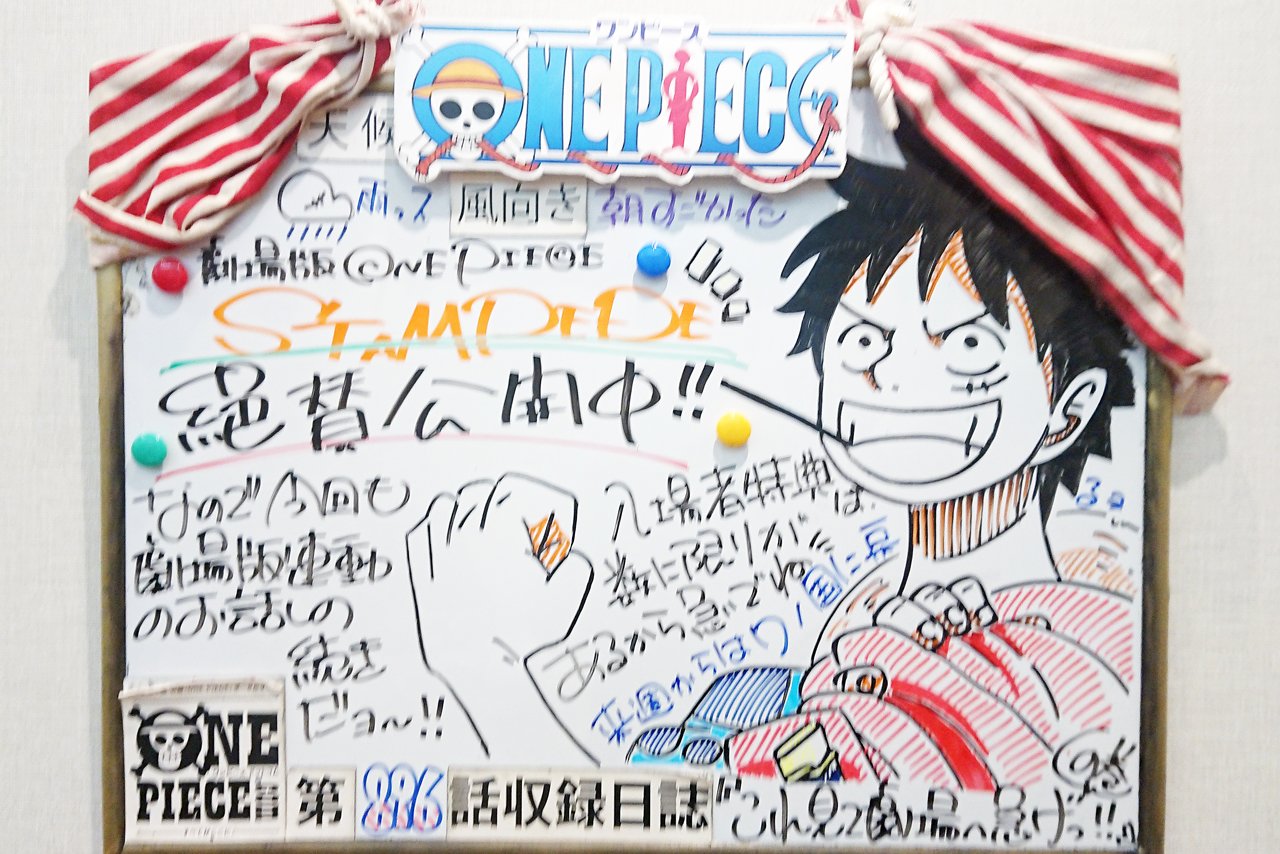 ワンピース
ONE PIECE
天候
雨っス 風向き 朝すごかった
劇場版 ONE PIECE
STAMPEDE
絶賛公開中!!
なので今回も
劇場版連動
のお話しの
続き
ビョ〜!!
入場者特典は
数に限りが
あるから急いでね
来週からはり!
ONE
PIECE
第886話収録日誌
これ見て劇場へ急げっ!!